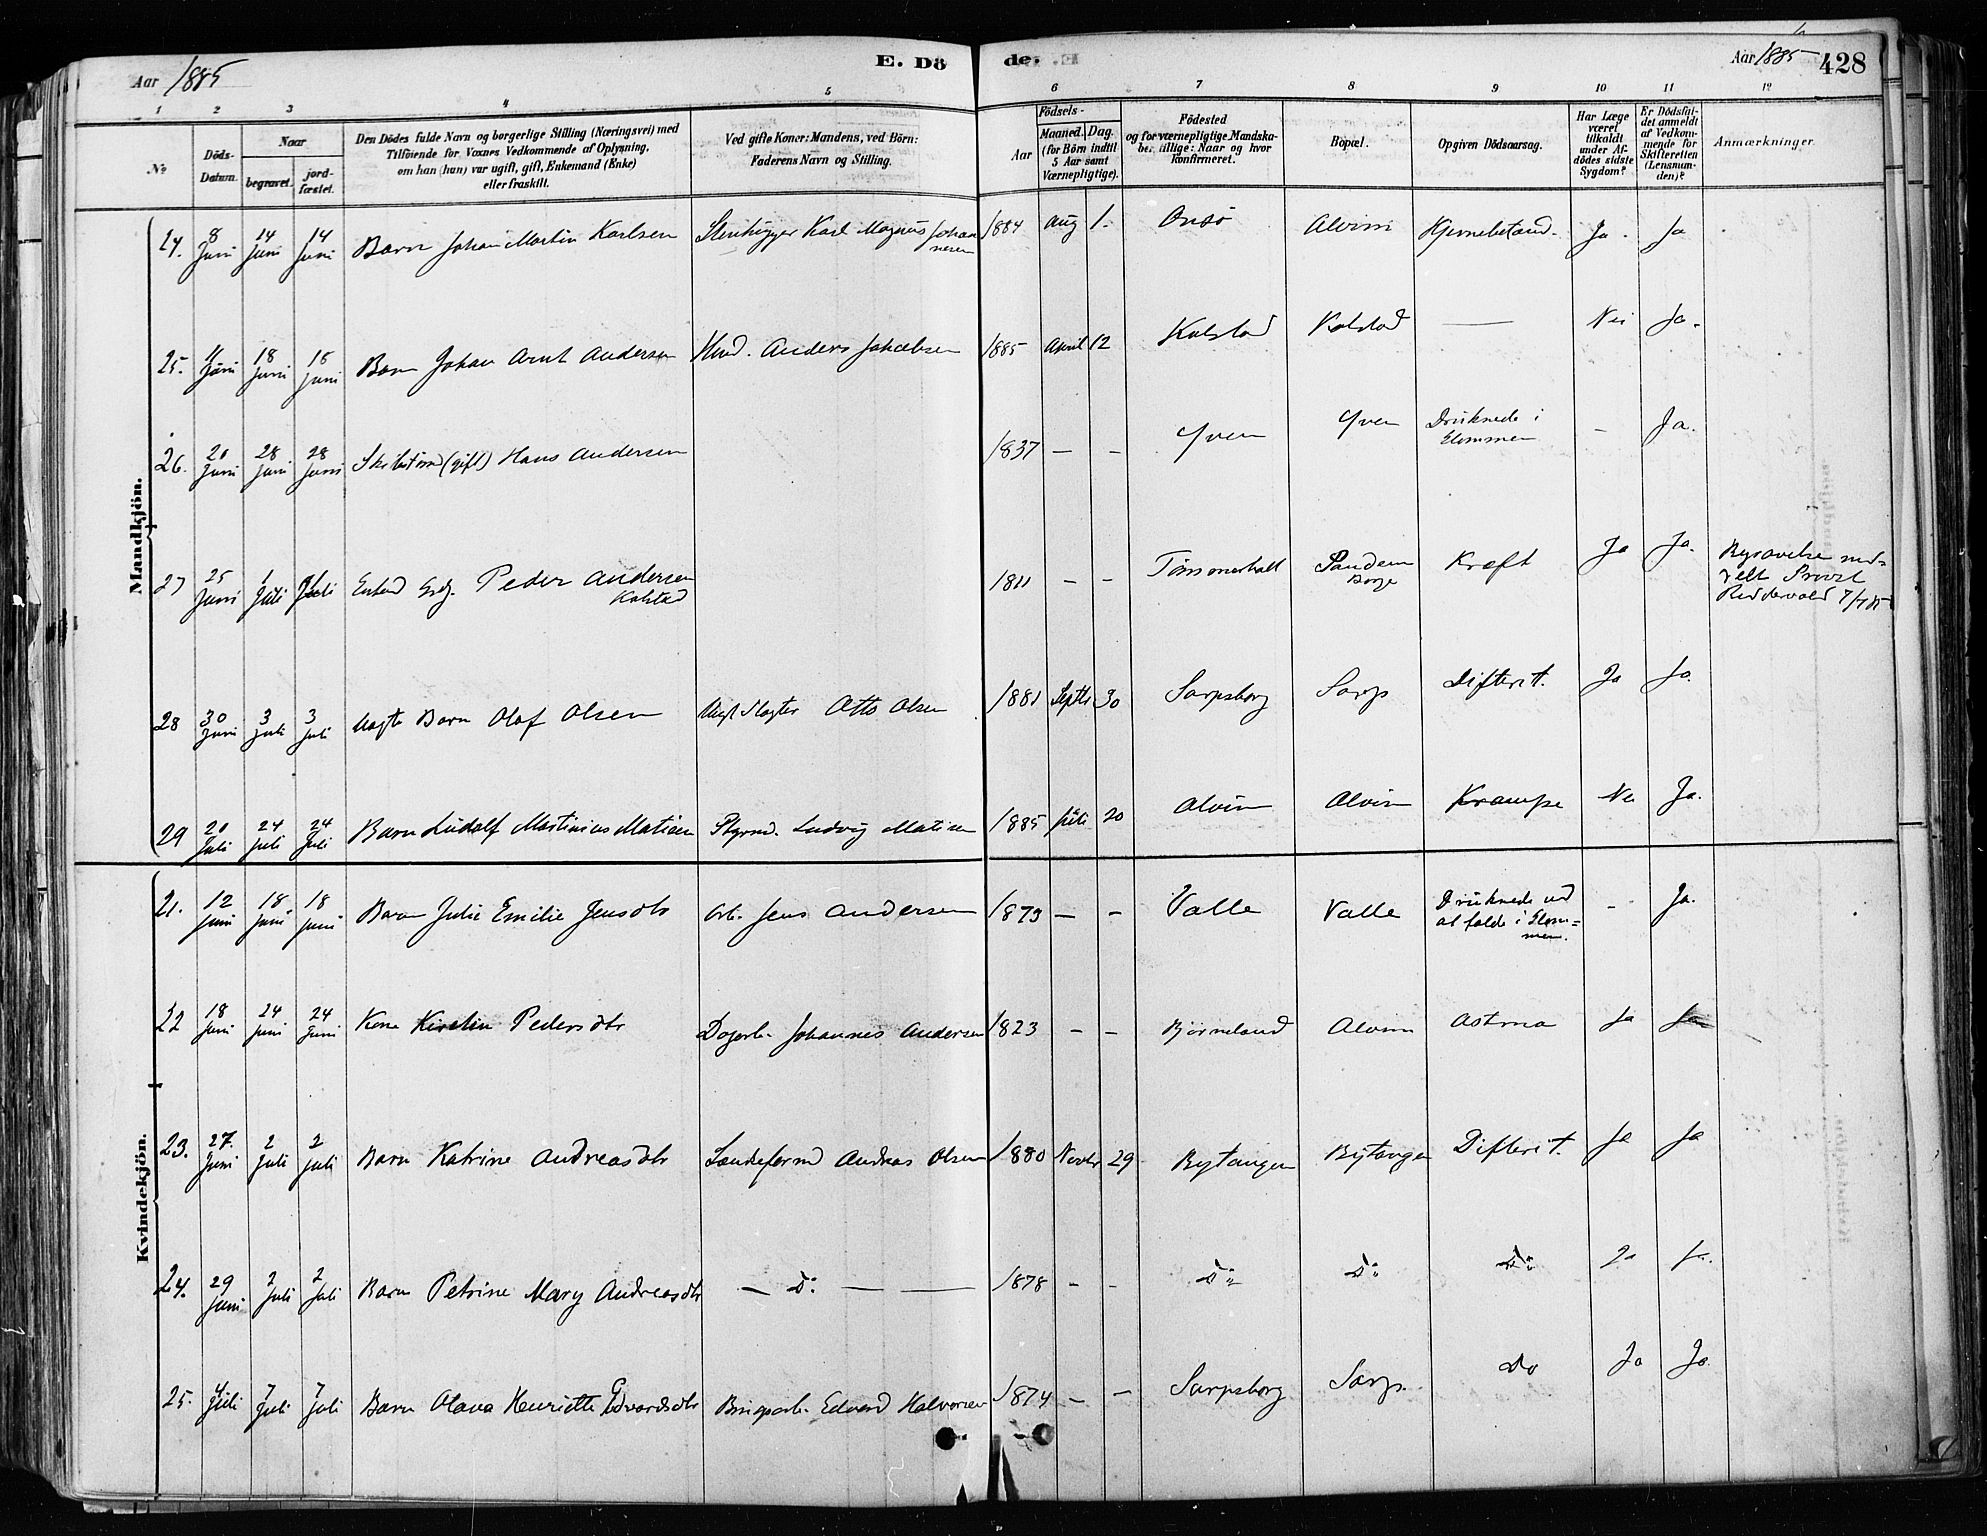 Aar 1885
E. Döde.
Aar 1885
428
1 2 3 4 5 6 7 8 9 10 11 12
№
Döds-Datum.
Naar
begravet.
jordfæstet.
Den Dödes fulde Navn og borgerlige Stilling (Næringsvei) med
Tilföiende for Voxnes Vedkommende af Oplysning,
om han (hun) var ugift, gift, Enkemand (Enke)
eller fraskilt.
Ved gifte Koner: Mandens, ved Börn:
Faderens Navn og Stilling.
Födsels-
Aar
Maaned. Dag.
(for Börn indtil
5 Aar samt
Værnepligtige).
Födested
og for værnepligtige Mandska-
ber tillige: Naar og hvor
konfirmeret.
Bopæl.
Opgiven Dödsaarsag.
Har Læge
været
tilkaldt
under Af-
dödes sidste
Sygdom?
Er Dödsfal-
det anmeldt
af Vedkom-
mende for
Skifteretten
(Lensman-
den)?
Anmærkninger.
Mandkjön.
24. 8 Juni 14 Juni 14 Juni Barn Johan Martin Karlsen Stenhugger Karl Magnus Johannesen 1884 Aug 1. Onsö Alvim Ja. Ja
25. Juni 18 Juni 18 Juni Barn Johan Arnt Andersen Anders Jakobsen 1885 April 12 Kalstad Kalstad — Nei Ja.
26. 20 Juni 28 Juni 28 Juni (gift) Hans Andersen 1837 — — Yven Yven Druknede i Glommen - Ja.
27 25 Juni 1 Juli Juli Peder Andersen Kalstad 1811 - - Sandem Borge Kræft Ja Ja. Provst 7/7 85
28 30 Juni 3 Juli 3 Juli Barn Olaf Olsen Slagter Otto Olsen 1881 Septbr 30 Sarpsborg Sarp Difterit. Ja Ja.
29 20 Juli 24 Juli 24 Juli Barn Ludolf Martinius Matisen Styrmd. Ludvig Matisen 1885 Juli 20 Alvim Alvim Krampe Nei Ja.
Kvindekjön.
21. 12 Juni 18 Juni 18 Juni Barn Julie Emilie Jensdtr Arb. Jens Andersen 1873 — - Valle Valle Druknede ved at falde i Glommen. - Ja.
22 18 Juni 24 Juni 24 Juni Kone Kirstin Pedersdtr Dagarb. Johannes Andersen 1823 - - Björneland Alvim Astma Ja Ja
23. 27 Juni 2 Juli 2 Juli Barn Katrine Andreasdtr Andreas Olsen 1880 Novbr 29 Bytangen Bytangen Difterit. Ja Ja
24. 29 Juni 2 Juli 2 Juli Barn Petrine Mary Andreasdtr — Do — — 1878 - - Do Do Do Ja Ja.
25. 4 Juli 7 Juli 7 Juli Barn Olava Henriette Edvardsdtr Edvard Halvorsen 1874 — — Sarpsborg Sarp. Do Ja Ja.